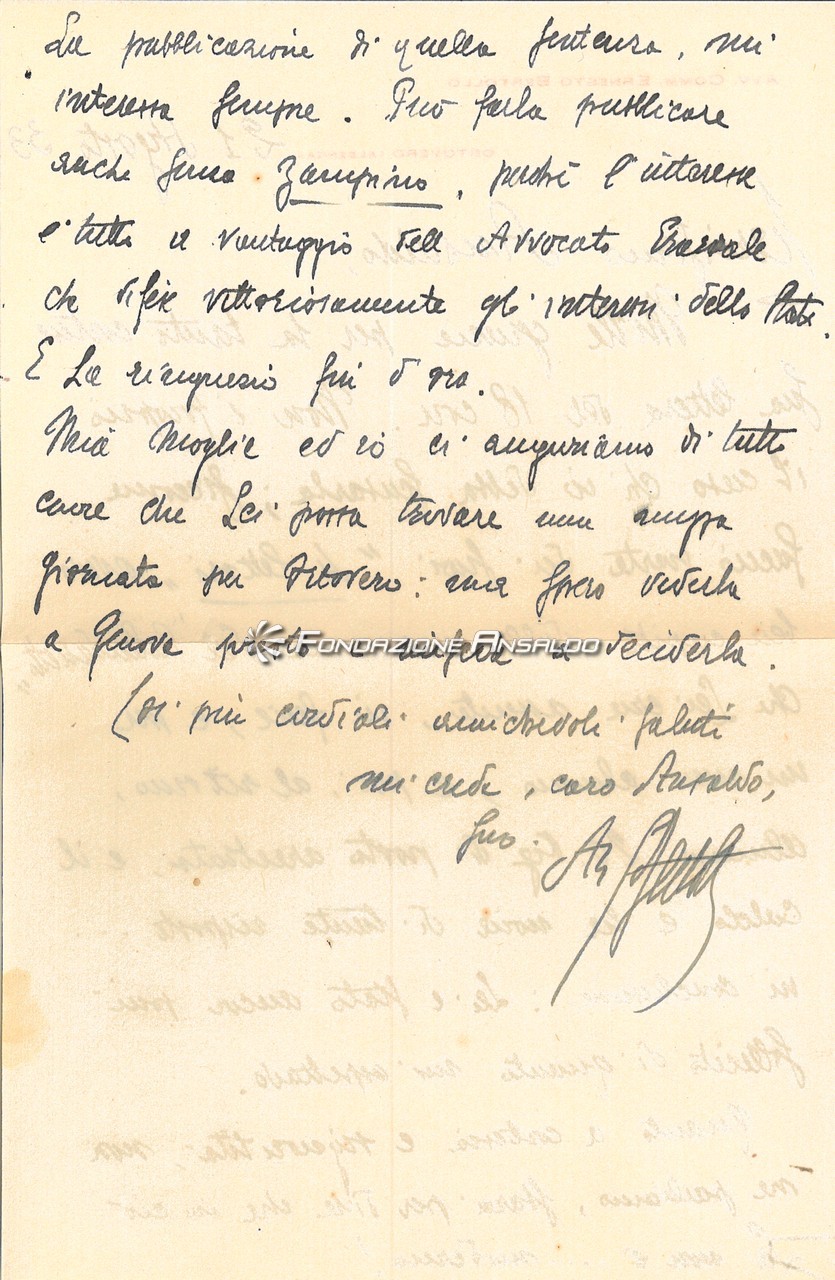 La pubblicazione di quella sentenza, mi
interessa sempre. Può farla pubblicare
anche senza Zampino, perché l'interesse
è tutto a vantaggio dell'Avvocato Erariale
che difese vittoriosamente gli interessi dello Stato.
E La ringrazio fin d'ora.
Mia moglie ed io ci auguriamo di tutto
cuore che Lei possa trovare una
giornata per Ortovero: ma spero vederla
a Genova presto e a deciderla.
Coi più cordiali amichevoli saluti
mi creda, caro Ansaldo,
Suo
FONDAZIONE ANSALDO